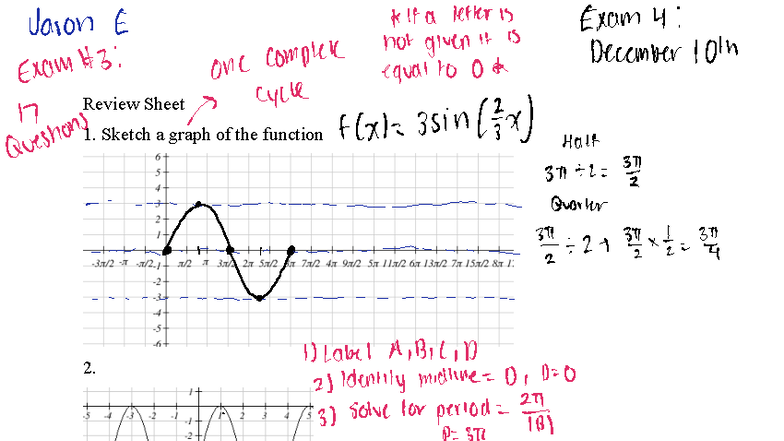 Jason E
Exam #3:
17
Questions
one complete
cycle
* If a letter is
not given it is
equal to 0 *
Exam 4:
December 10th
Review Sheet
1. Sketch a graph of the function f(x)= 3sin(2/3 x)
Half
3π ÷ 2 = 3π/2
Quarter
3π/2 ÷ 2 → 3π/2 × 1/2 = 3π/4
6
5
4
3
2
1
-3π/2 -π -π/2 π/2 π 3π/2 2π 5π/2 3π 7π/2 4π 9π/2 5π 11π/2 6π 13π/2 7π 15π/2 8π
-1
-2
-3
-4
-5
-6
1) Label A, B, C, D
2) Identify midline = 0, D=0
3) Solve for period = 2π/|B|
P= 3π
2.
1
-5 -4 -3 -2 -1 1 2 3 4 5
-1
-2